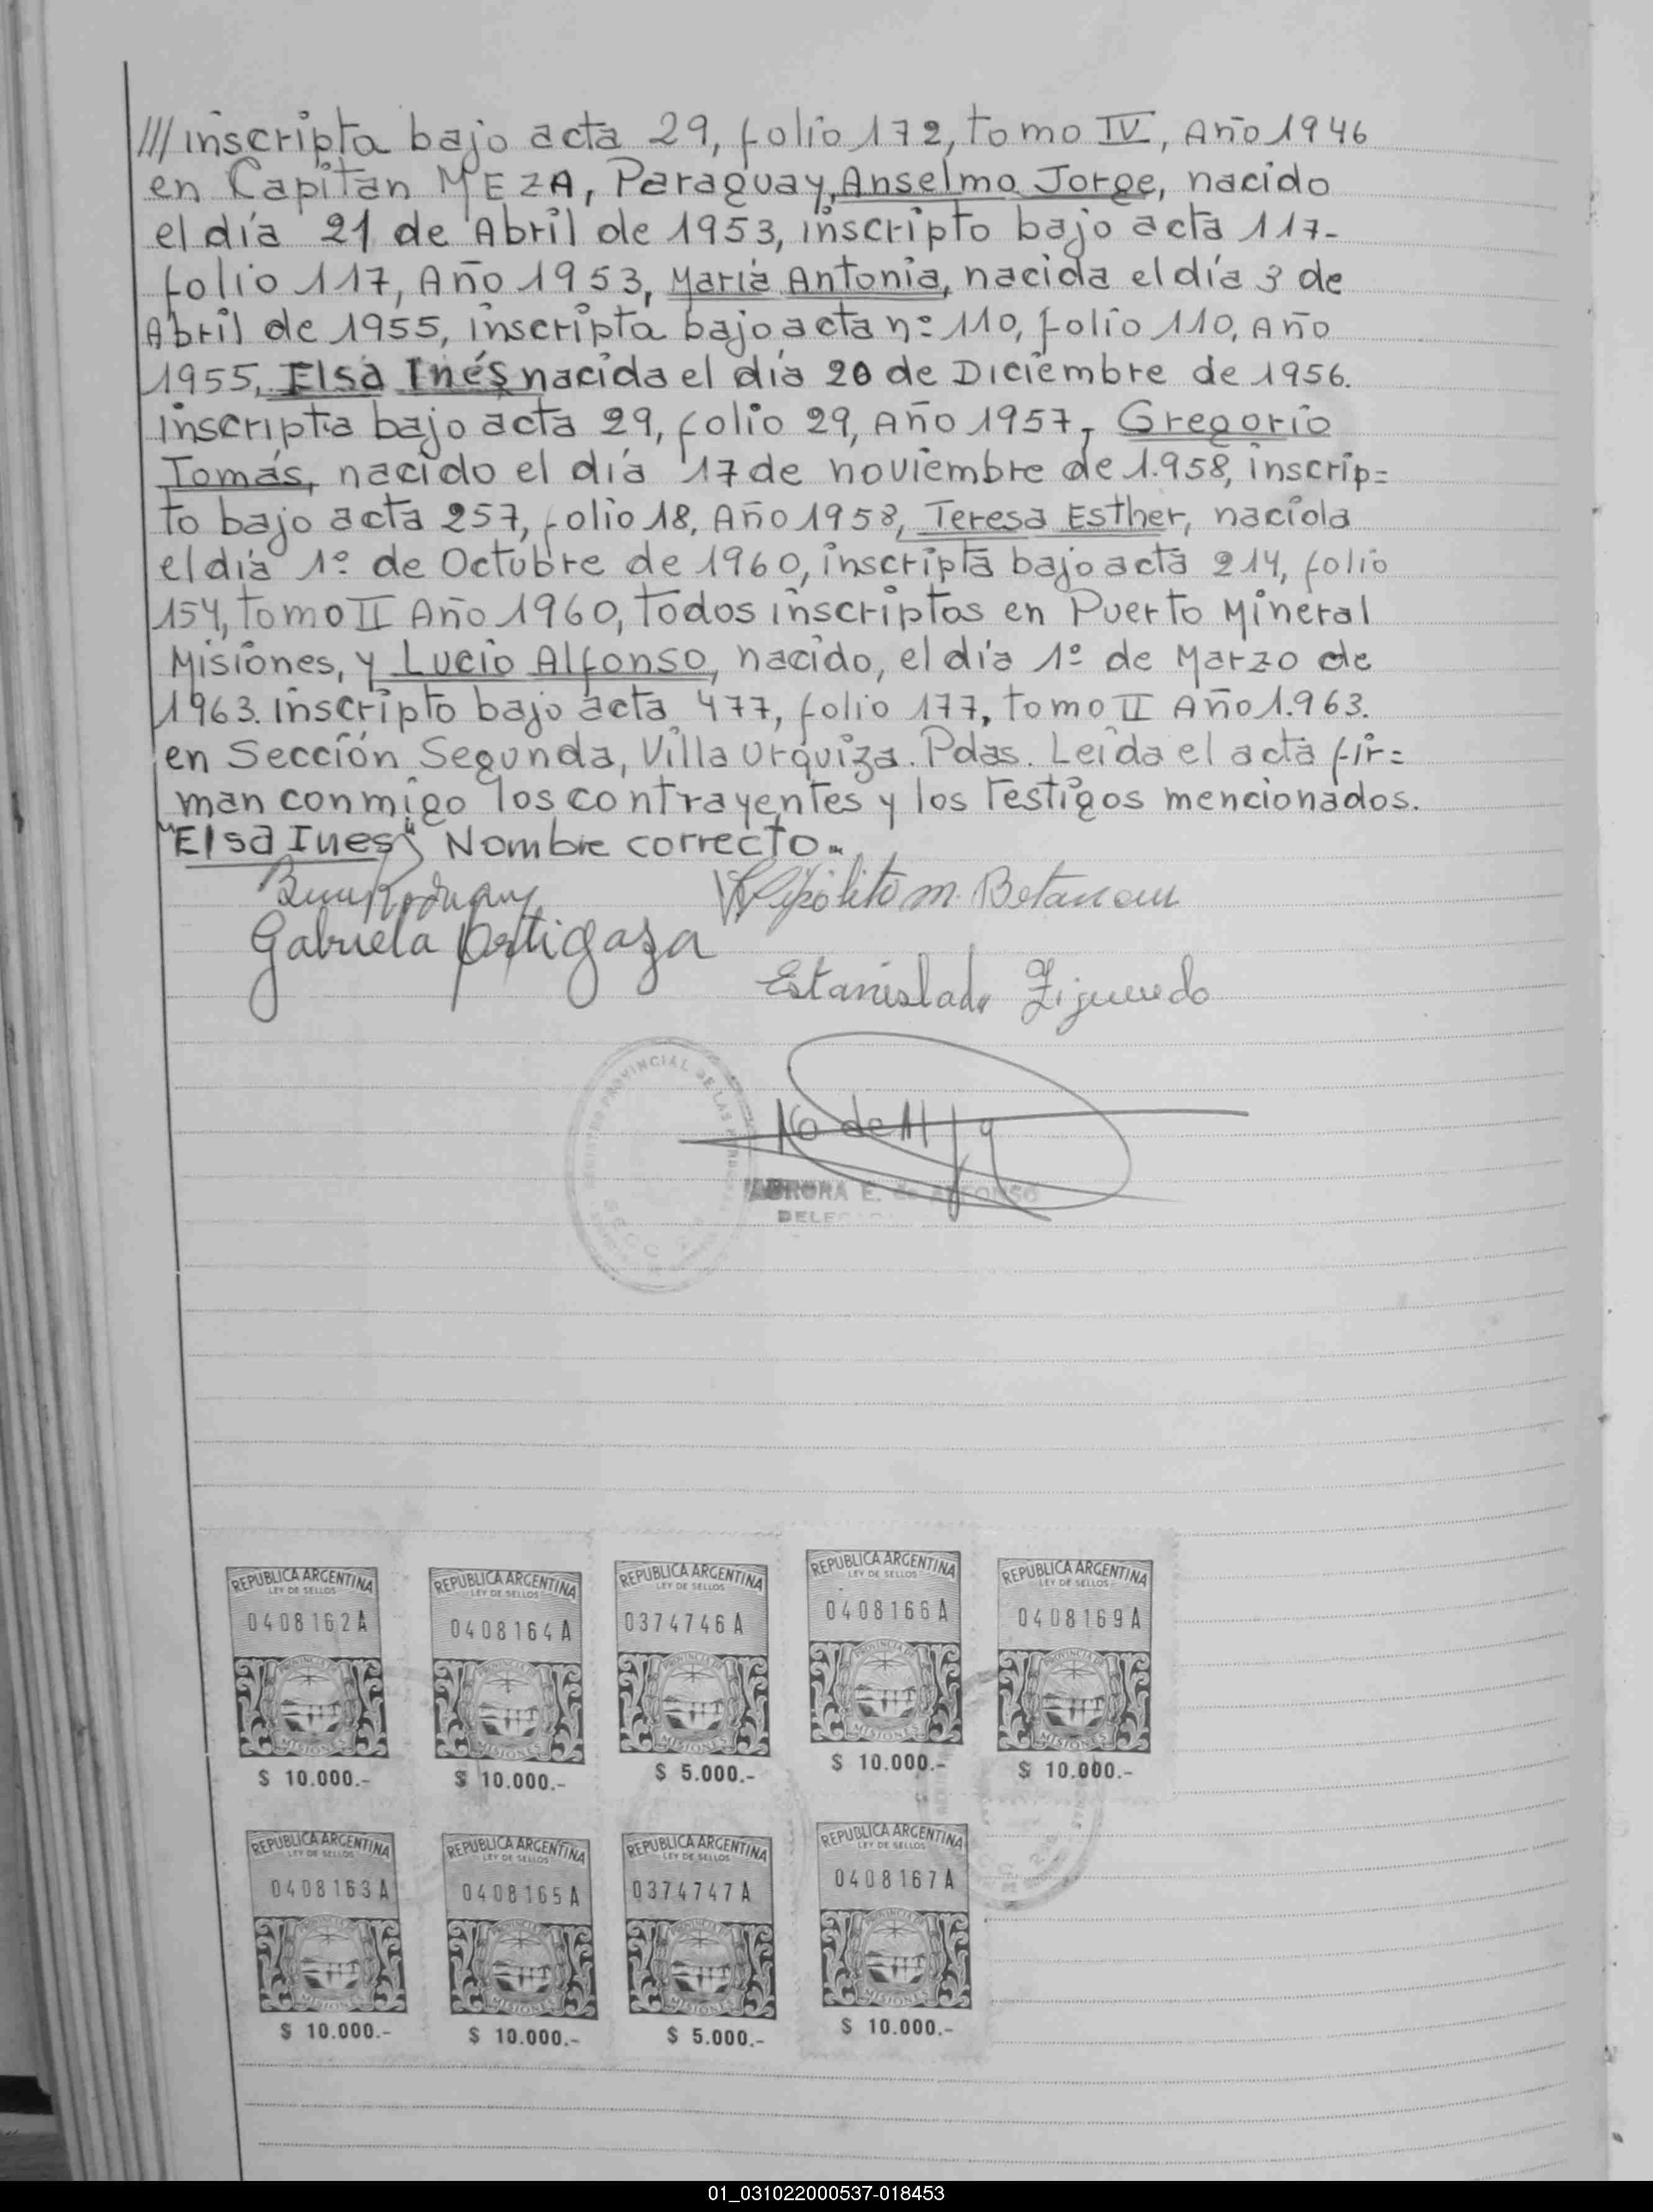 /// inscripta bajo acta 29, folio 172, tomo IV, Año 1946
en Capitán MEZA, Paraguay, Anselmo Jorge, nacido
el día 21 de Abril de 1953, inscripto bajo acta 117-
folio 117, Año 1953, María Antonia, nacida el día 3 de
Abril de 1955, inscripta bajo acta nº 110, folio 110, Año
1955, Elsa Inés nacida el día 20 de Diciembre de 1956.
inscripta bajo acta 29, folio 29, Año 1957, Gregorio
Tomás, nacido el día 17 de noviembre de 1.958, inscrip=
to bajo acta 257, folio 18, Año 1958, Teresa Esther, nacida
el día 1º de Octubre de 1960, inscripta bajo acta 214, folio
154, tomo II Año 1960, todos inscriptos en Puerto Mineral
Misiones, y Lucio Alfonso, nacido, el día 1º de Marzo de
1963. inscripto bajo acta 477, folio 177, tomo II Año 1.963.
en Sección Segunda, Villa Urquiza. Pdas. Leída el acta fir=
man conmigo los contrayentes y los testigos mencionados.
"Elsa Ines" Nombre correcto.
Hipólito M.
Gabriela Ortigoza
Estanislado Figueredo
PROVINCIAL DE LAS
AURORA E. de ALFONSO
REPUBLICA ARGENTINA REPUBLICA ARGENTINA REPUBLICA ARGENTINA REPUBLICA ARGENTINA REPUBLICA ARGENTINA
LEY DE SELLOS LEY DE SELLOS LEY DE SELLOS LEY DE SELLOS LEY DE SELLOS
0408162A 0408164A 0374746A 0408166A 0408169A
PROVINCIA DE PROVINCIA DE PROVINCIA DE PROVINCIA DE PROVINCIA DE
MISIONES MISIONES MISIONES MISIONES MISIONES
$ 10.000.- $ 10.000.- $ 5.000.- $ 10.000.- $ 10.000.-
REPUBLICA ARGENTINA REPUBLICA ARGENTINA REPUBLICA ARGENTINA REPUBLICA ARGENTINA
LEY DE SELLOS LEY DE SELLOS LEY DE SELLOS LEY DE SELLOS
0408163A 0408165A 0374747A 0408167A
PROVINCIA DE PROVINCIA DE PROVINCIA DE PROVINCIA DE
MISIONES MISIONES MISIONES MISIONES
$ 10.000.- $ 10.000.- $ 5.000.- $ 10.000.-
01_031022000537-018453